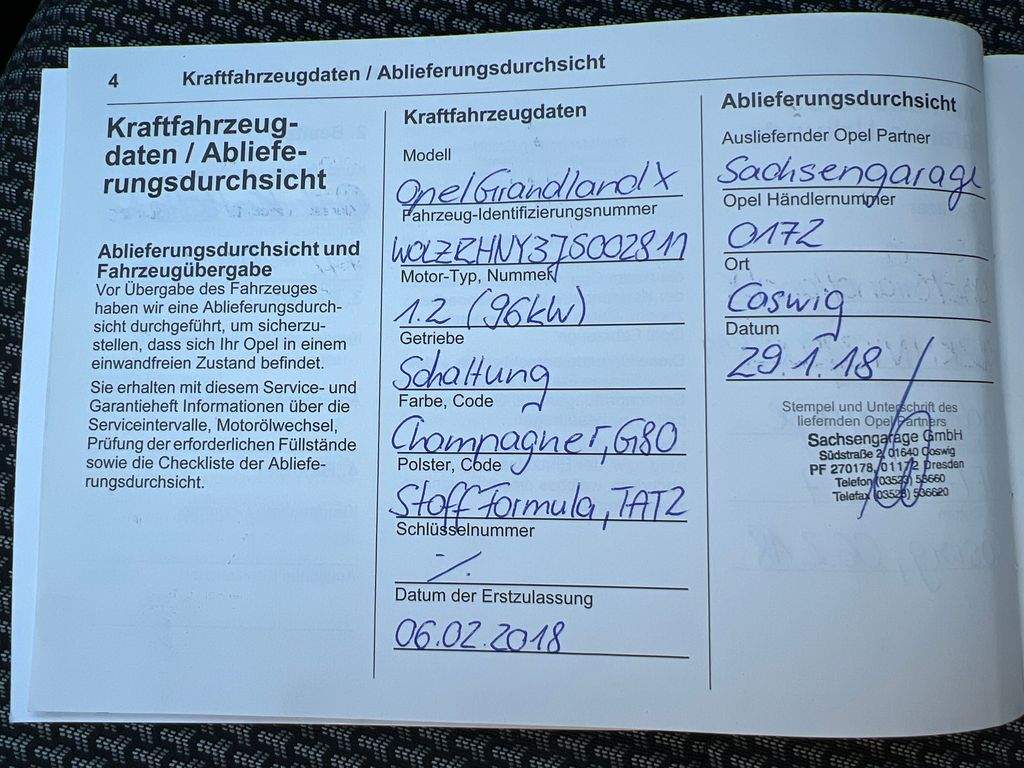 4
Kraftfahrzeugdaten / Ablieferungsdurchsicht
Kraftfahrzeug-
daten / Abliefe-
rungsdurchsicht
Ablieferungsdurchsicht und
Fahrzeugübergabe
Vor Übergabe des Fahrzeuges
haben wir eine Ablieferungsdurch-
sicht durchgeführt, um sicherzu-
stellen, dass sich Ihr Opel in einem
einwandfreien Zustand befindet.
Sie erhalten mit diesem Service- und
Garantieheft Informationen über die
Serviceintervalle, Motorölwechsel,
Prüfung der erforderlichen Füllstände
sowie die Checkliste der Abliefe-
rungsdurchsicht.
Kraftfahrzeugdaten
Modell
Opel Grandland X
Fahrzeug-Identifizierungsnummer
W0LZRHNY3JS002811
Motor-Typ, Nummer
1.2 (96kW)
Getriebe
Schaltung
Farbe, Code
Champagner, G80
Polster, Code
Stoff Formula, TAT2
Schlüsselnummer
·/.
Datum der Erstzulassung
06.02.2018
Ablieferungsdurchsicht
Ausliefernder Opel Partner
Sachsengarage
Opel Händlernummer
0172
Ort
Coswig
Datum
29.1.18
Stempel und Unterschrift des
liefernden Opel Partners
Sachsengarage GmbH
Südstraße 2, 01640 Coswig
PF 270178, 01172 Dresden
Telefon (03523) 53660
Telefax (03523) 536620